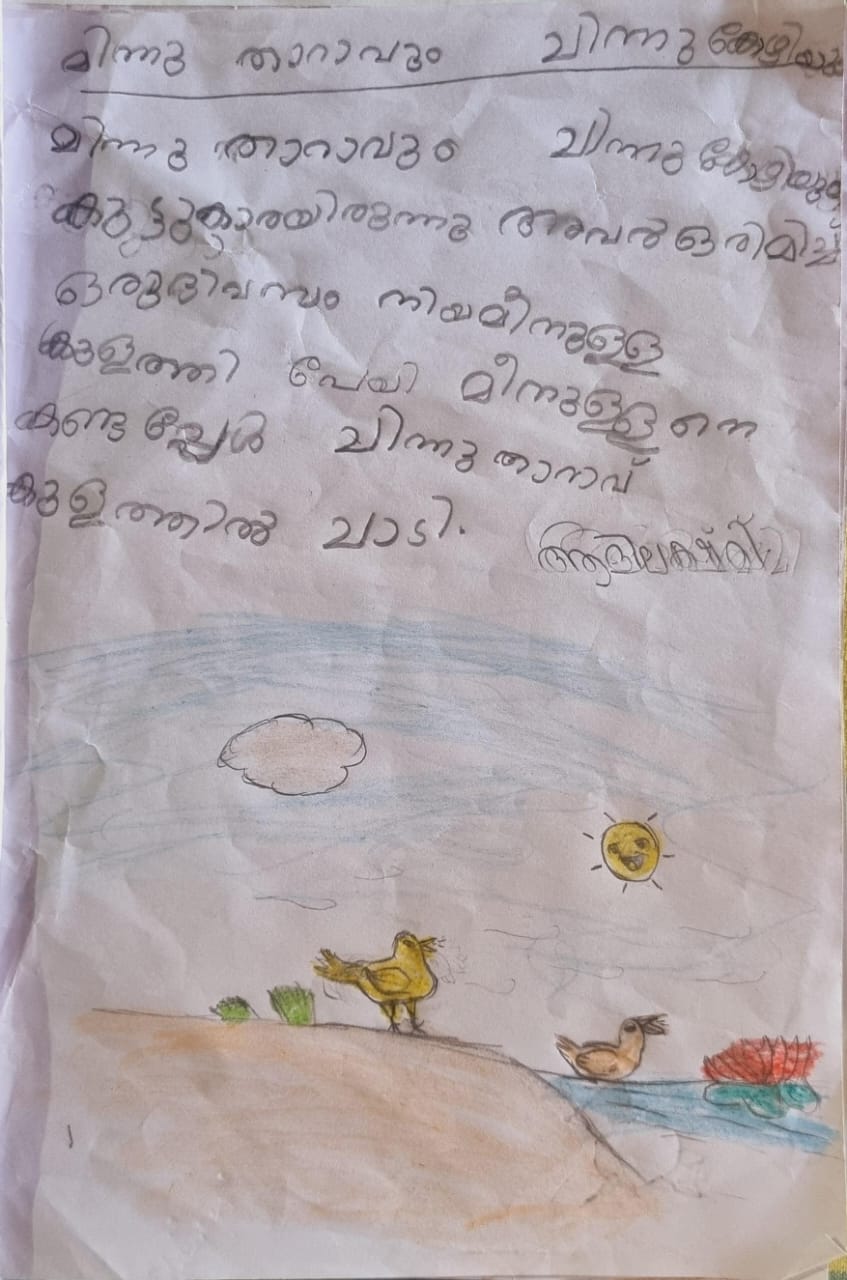 മിന്നു താറാവും ചിന്നു കോഴിയും
മിന്നു താറാവും ചിന്നു കോഴിയും
കുട്ടുകാരയിരുന്നു അവർ ഒരിമിച്ച്
ഒരുദിവസം നിയമീനുള്ള
കുളത്തി പേയി മീനുള്ളനെ
കണ്ട പ്പേൾ ചിന്നു താനവ്
കുളത്തിൽ ചാടി.